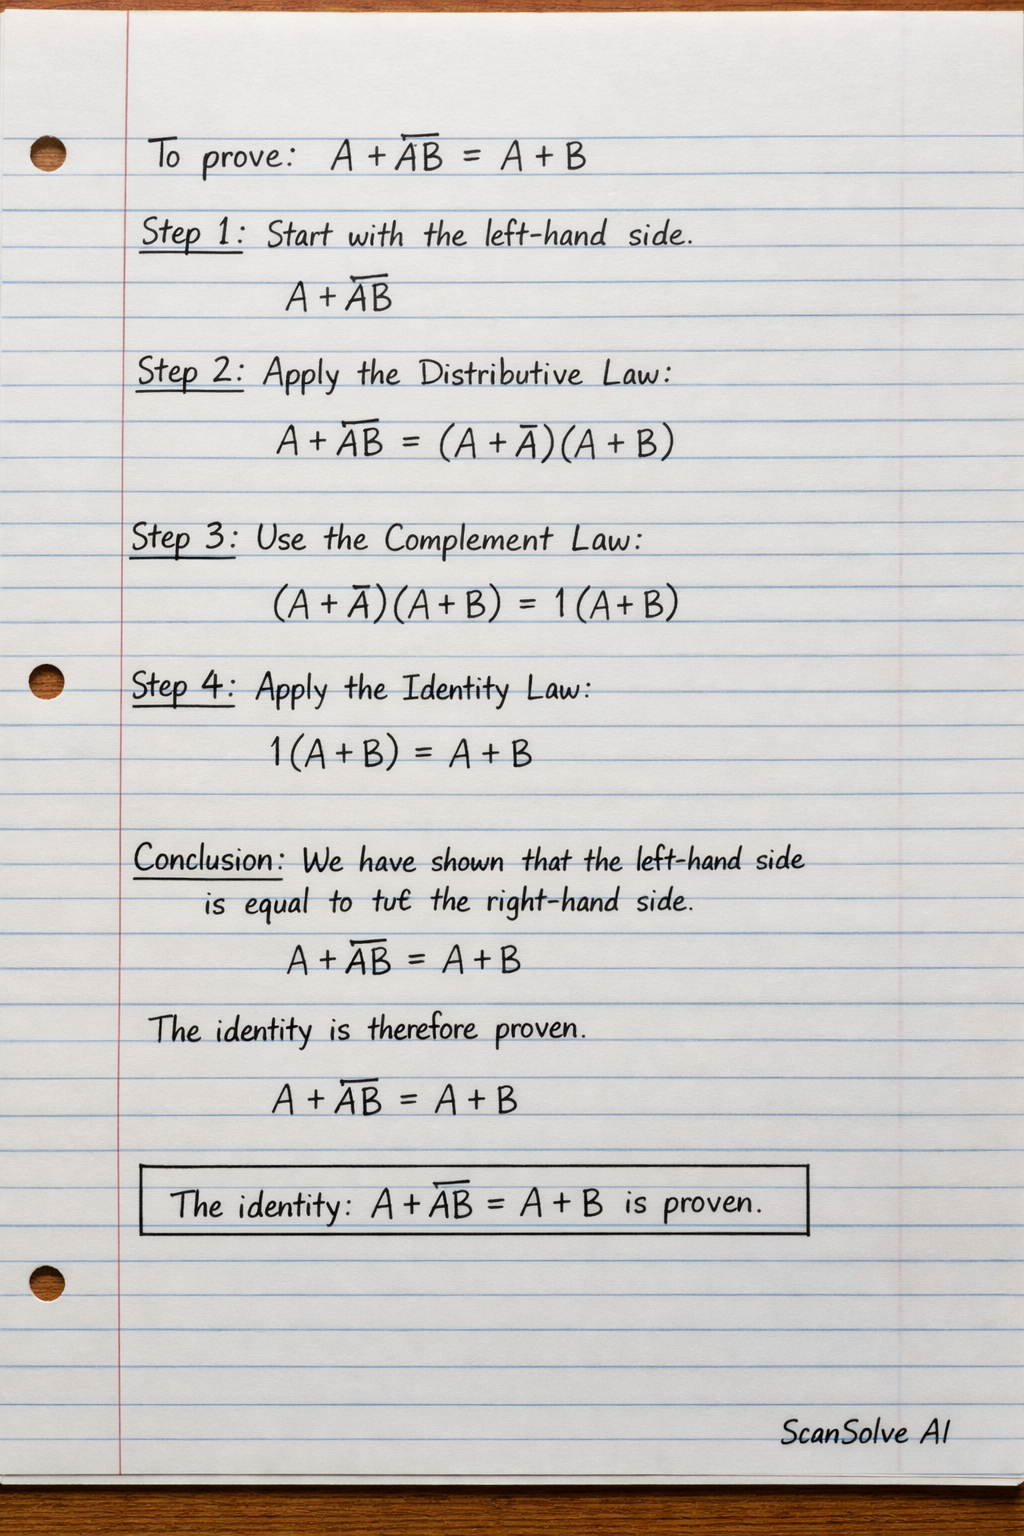 To prove: A + A̅B̅ = A + B
Step 1: Start with the left-hand side.
A + A̅B̅
Step 2: Apply the Distributive Law:
A + A̅B̅ = (A + A̅)(A + B)
Step 3: Use the Complement Law:
(A + A̅)(A + B) = 1(A + B)
Step 4: Apply the Identity Law:
1(A + B) = A + B
Conclusion: We have shown that the left-hand side
is equal to the right-hand side.
A + A̅B̅ = A + B
The identity is therefore proven.
A + A̅B̅ = A + B
The identity: A + A̅B̅ = A + B is proven.
ScanSolve AI